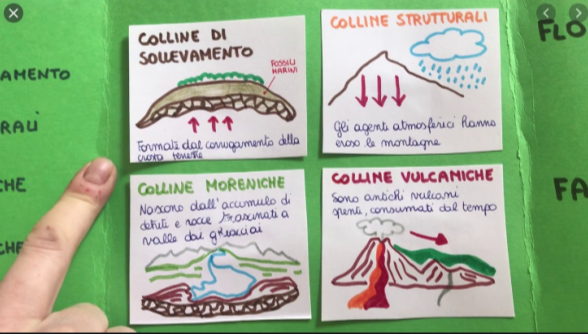 AMENTO
RALI
CHE
CHE
COLLINE DI
SOLLEVAMENTO
FOSSILI
MARINI
Formate dal corrugamento della
crosta terrestre
COLLINE STRUTTURALI
Gli agenti atmosferici hanno
eroso le montagne
COLLINE MORENICHE
Nascono dall'accumulo di
detriti e rocce trascinati a
valle dai ghiacciai
COLLINE VULCANICHE
Sono antichi vulcani
spenti, consumati dal tempo
FLO
FA